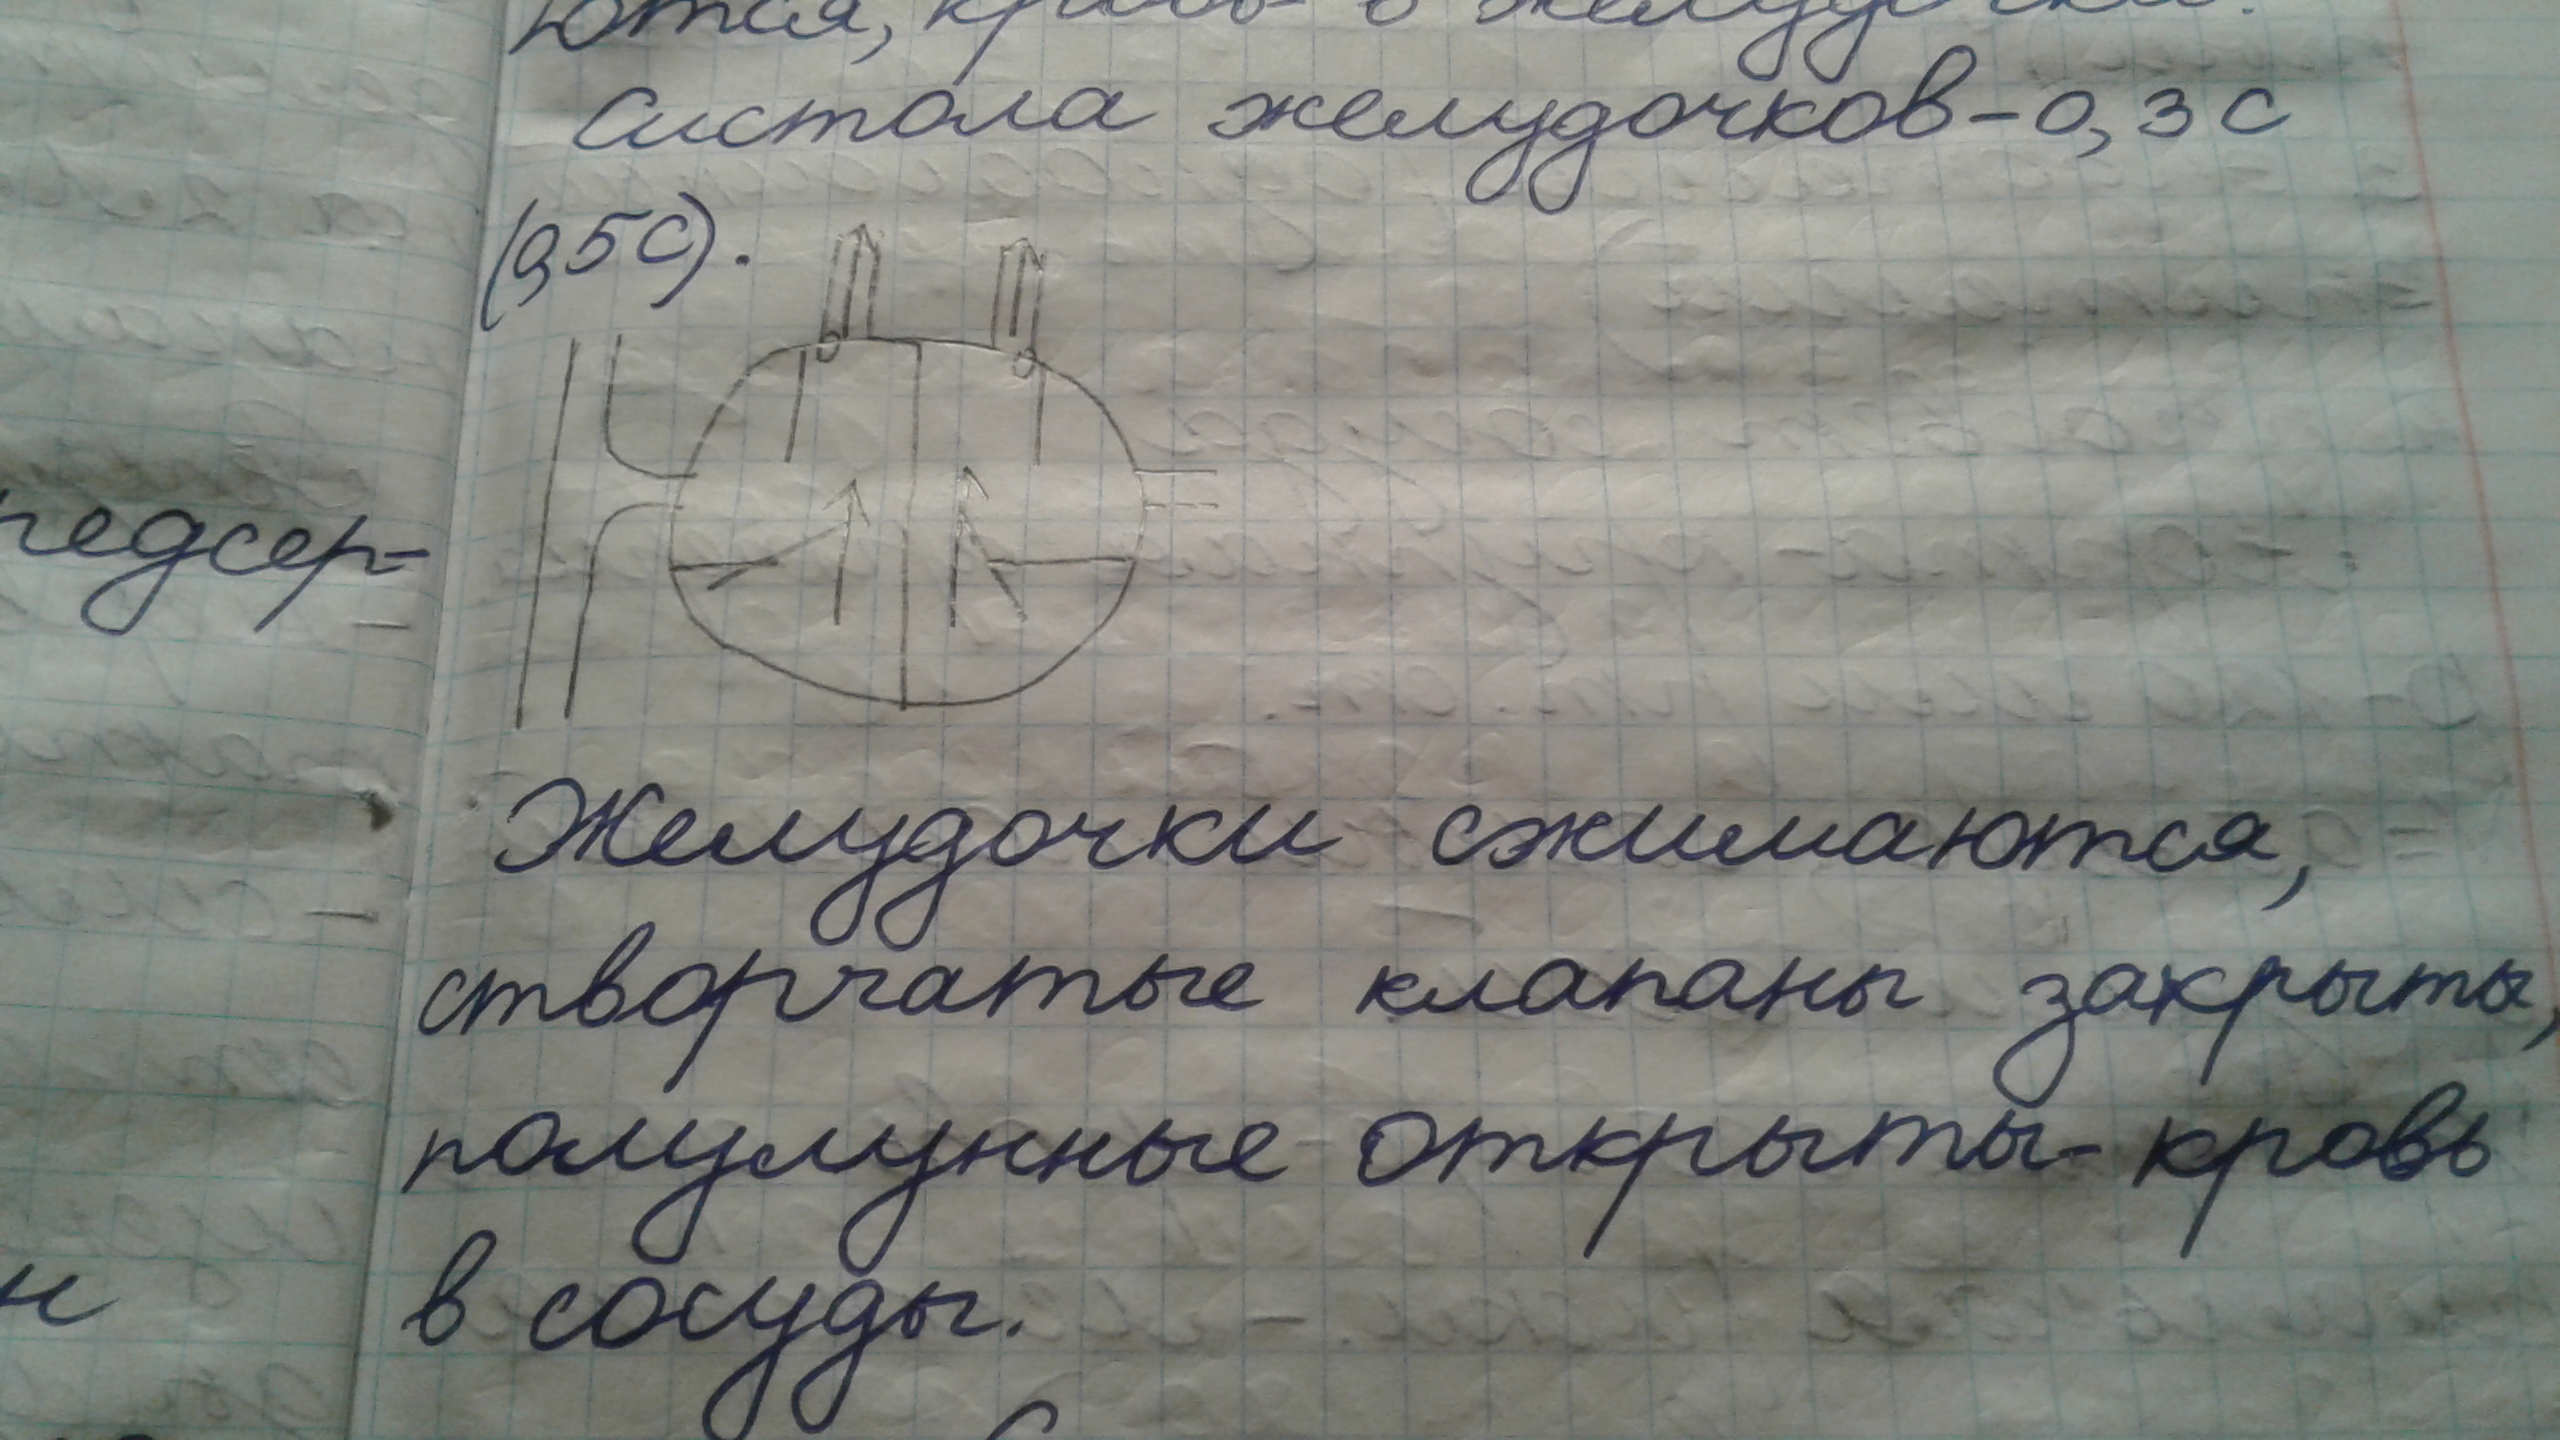 ются, кровь - в желудочки.
Систола желудочков - 0,3 с
(0,5 с).
предсер-
Желудочки сжимаются,
створчатые клапаны закрыты,
полулунные открыты - кровь
в сосуды.